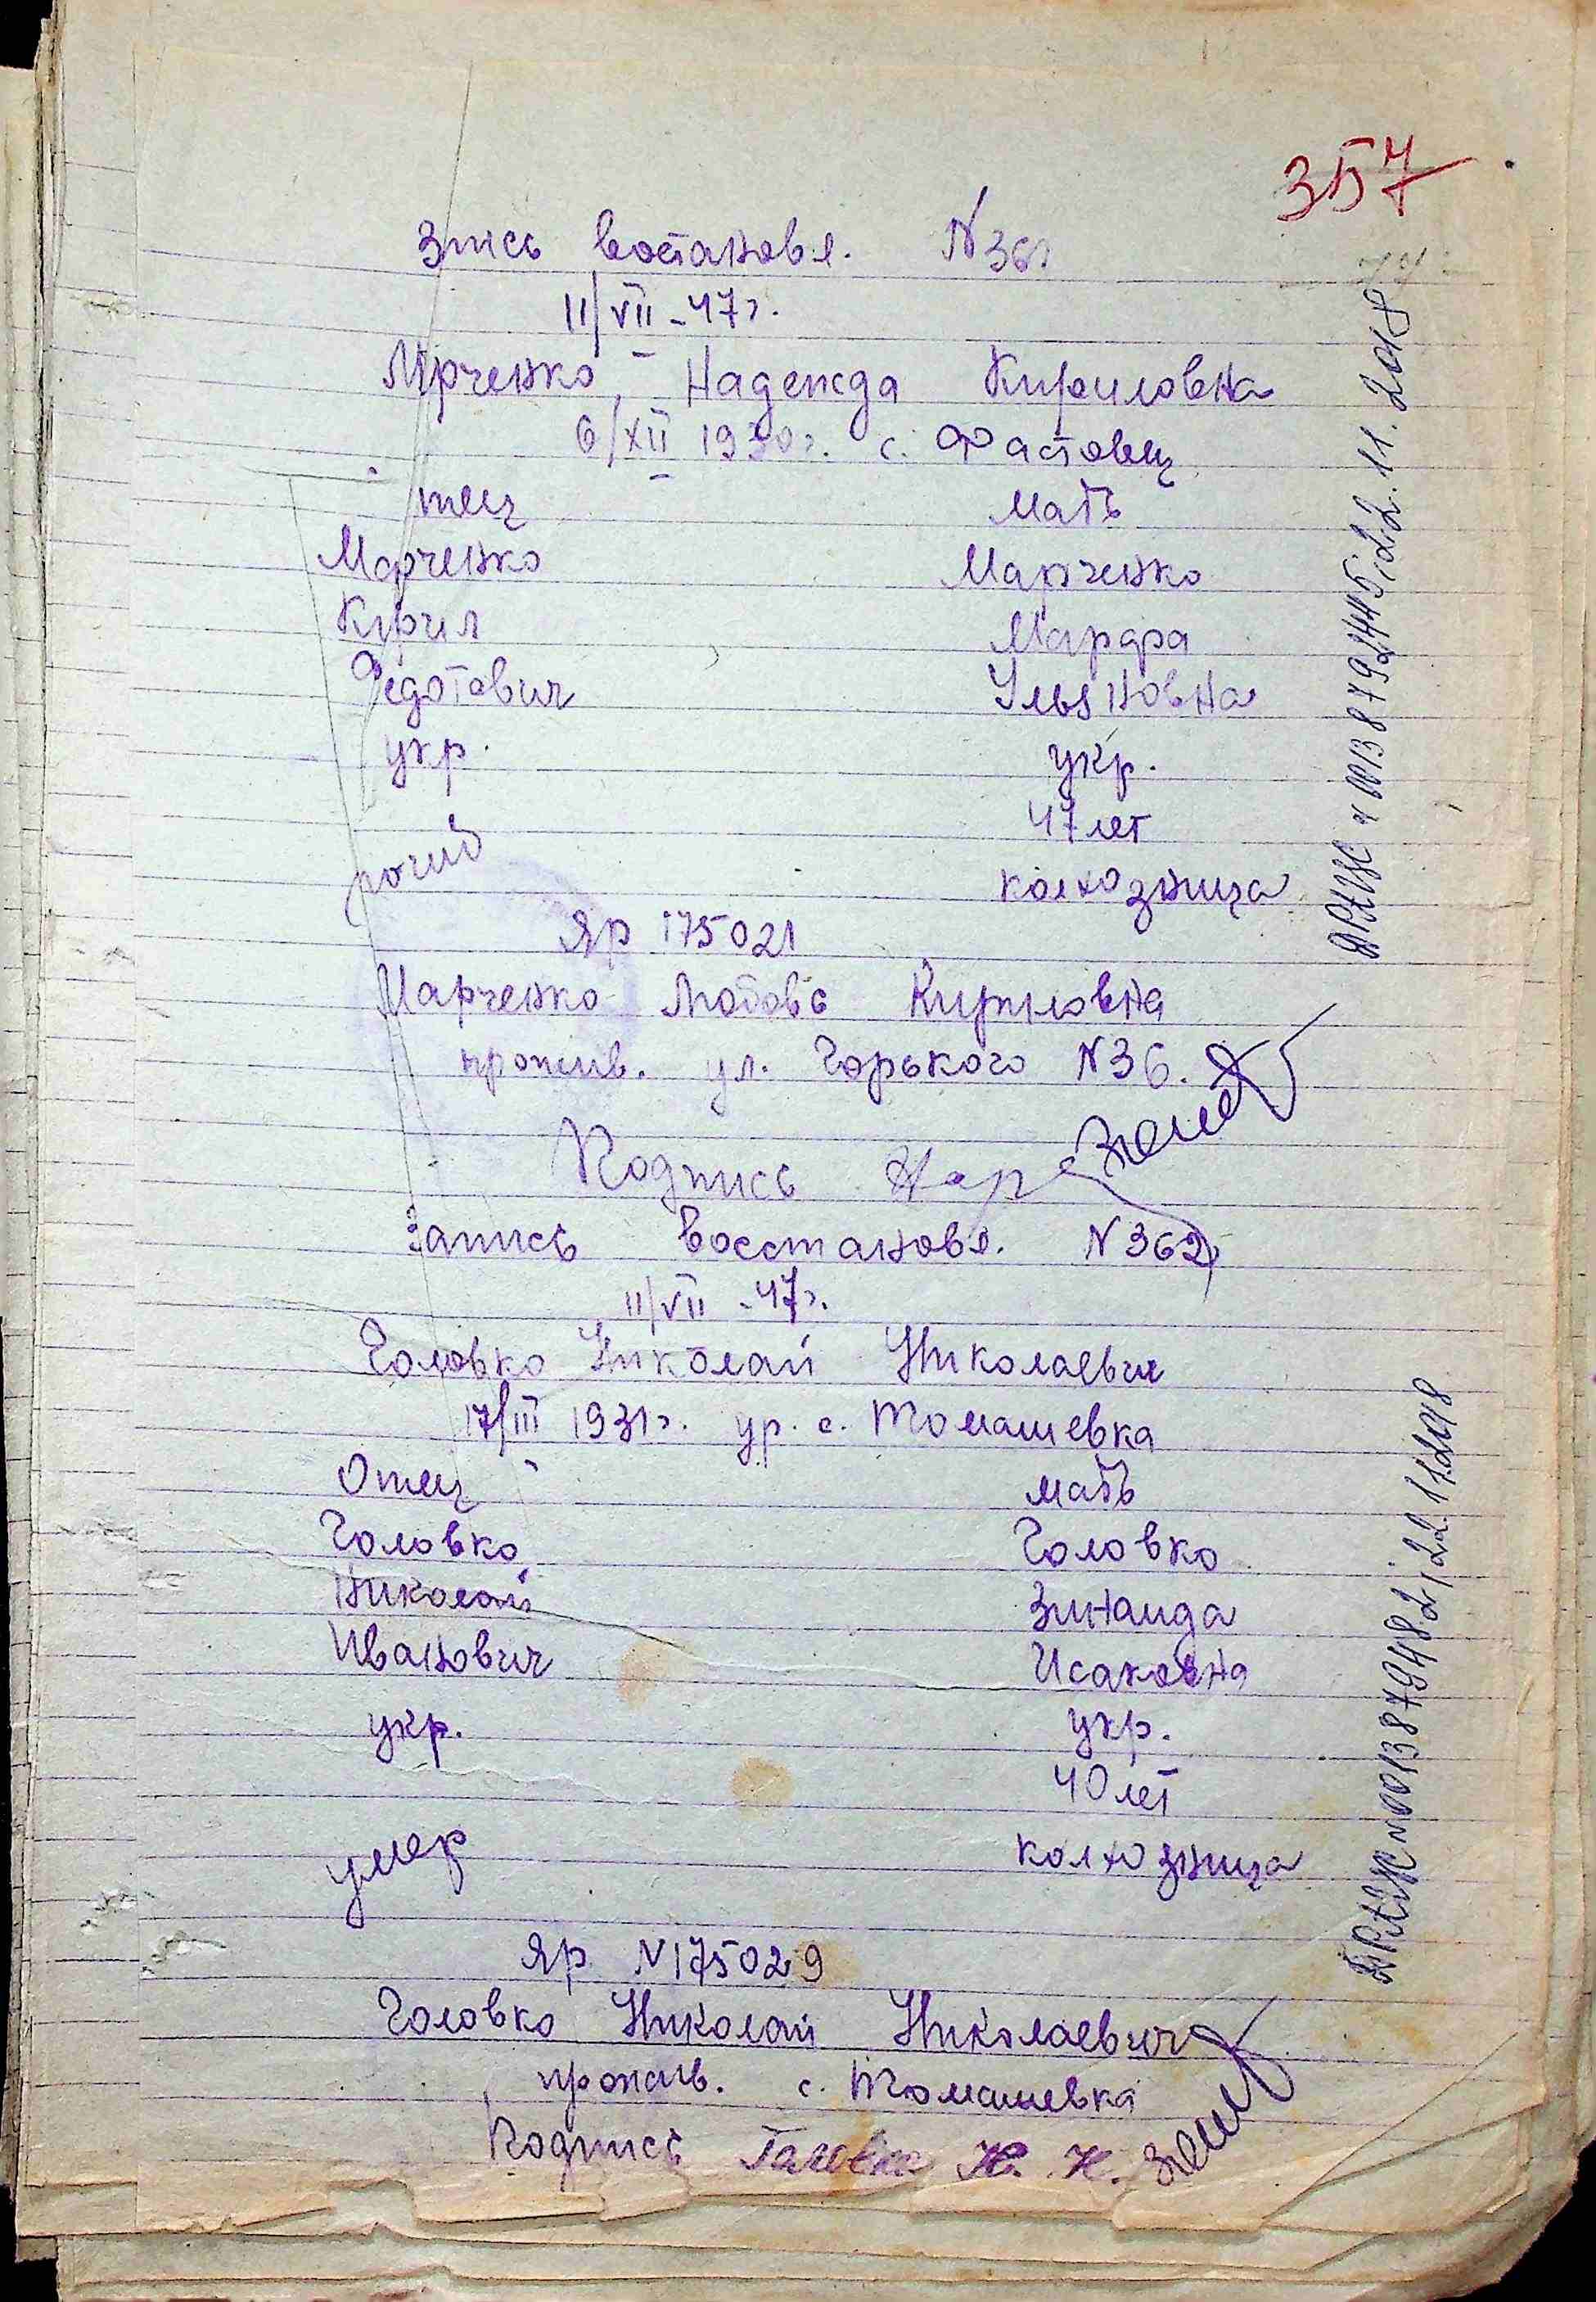 357
Зпись востановл. N 361
11/VII - 47г.
Мрченко Надежда Кириловна
6/XII 1930г. с. Фастовец
тец мать
Марченко Марченко
Кирил Марфа
Федотович Ульяновна
укр. укр.
47 лет
рочий колхозница
ЯР 175021
Марченко Любовь Кириловна
прожив. ул. Горького N 36.
Подпись Мар
Запись восстановл. N 362
11/VII - 47г.
Головко Николай Николаевич
17/III 1931г. ур. с. Томашевка
Отец мать
Головко Головко
Николай Зинаида
Иванович Исаковна
укр. укр.
40 лет
умер колхозница
ЯР N 175029
Головко Николай Николаевич
прожив. с. Томашевка
Подпись Головко Н. Н.
ДРАЦС N 00138792445, 22.11.2018
ДРАЦС N 00138794882, 22.11.2018